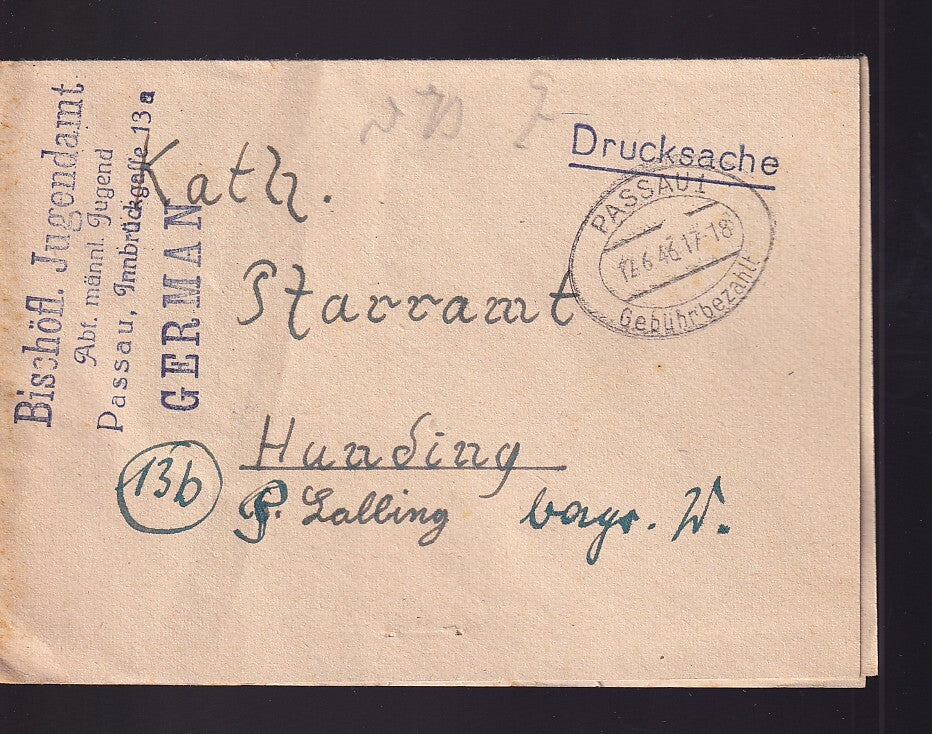 Bischöfl. Jugendamt
Abt. männl. Jugend
Passau, Innbrückgasse 13a
GERMAN
Drucksache
PASSAU 1
12.6.46.17-18
Gebührbezahlt
Kath.
Pfarramt
Hunding
P. Lalling bayr. W.
13b